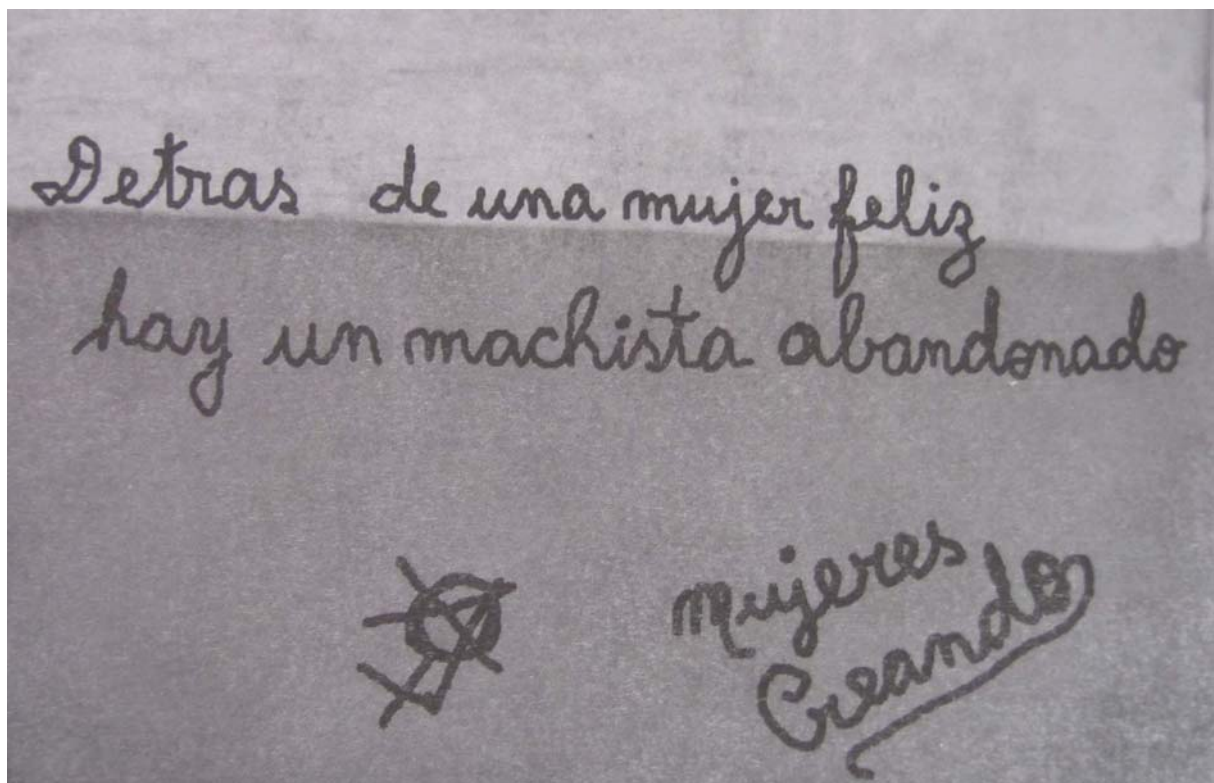 Detras de una mujer feliz
hay un machista abandonado
Mujeres
Creando